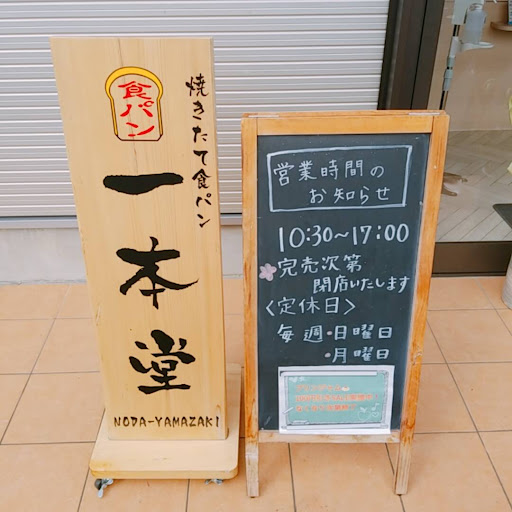 食パン
焼きたて食パン
一本堂
NODA-YAMAZAKI
営業時間の
お知らせ
10:30~17:00
完売次第
閉店いたします
〈定休日〉
毎週・日曜日
・月曜日